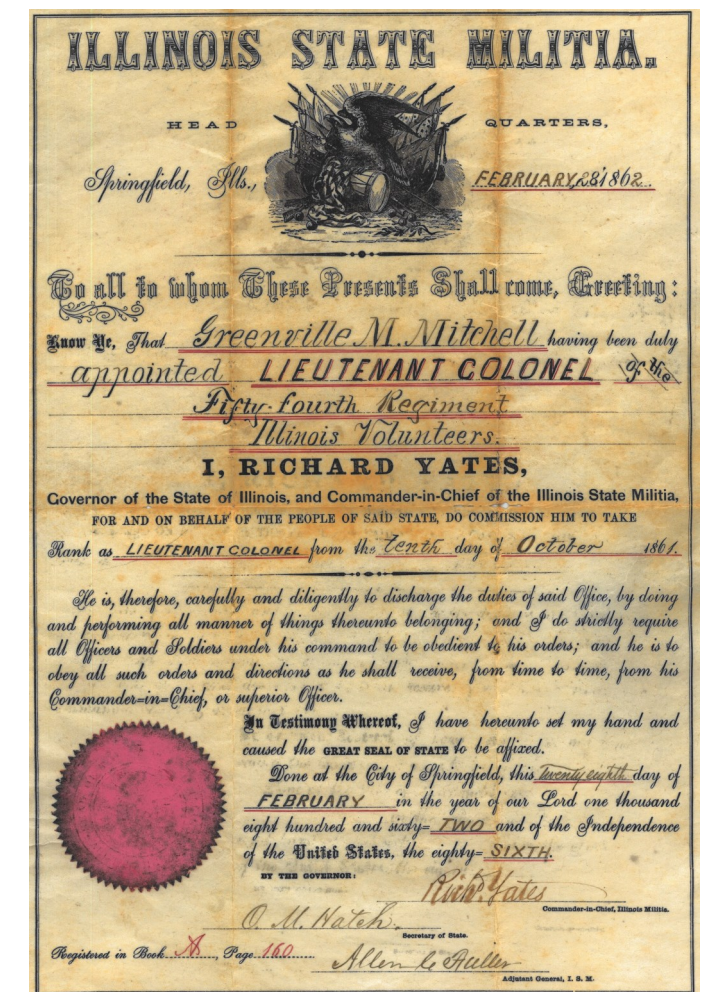 ILLINOIS STATE MILITIA.
HEAD QUARTERS,
Springfield, Ills., FEBRUARY, 28, 1862.
To all to whom These Presents Shall come, Greeting:
Know Ye, That Greenville M. Mitchell having been duly
appointed LIEUTENANT COLONEL of the
Fifty-fourth Regiment
Illinois Volunteers.
I, RICHARD YATES,
Governor of the State of Illinois, and Commander-in-Chief of the Illinois State Militia,
FOR AND ON BEHALF OF THE PEOPLE OF SAID STATE, DO COMMISSION HIM TO TAKE
Rank as LIEUTENANT COLONEL from the tenth day of October 1861.
He is, therefore, carefully and diligently to discharge the duties of said Office, by doing
and performing all manner of things thereunto belonging; and I do strictly require
all Officers and Soldiers under his command to be obedient to his orders; and he is to
obey all such orders and directions as he shall receive, from time to time, from his
Commander=in=Chief, or superior Officer.
In Testimony Whereof, I have hereunto set my hand and
caused the GREAT SEAL OF STATE to be affixed.
Done at the City of Springfield, this Twenty eighth day of
FEBRUARY in the year of our Lord one thousand
eight hundred and sixty= TWO and of the Independence
of the United States, the eighty= SIXTH.
BY THE GOVERNOR:
Richd. Yates
Commander-in-Chief, Illinois Militia.
O. M. Hatch.
Secretary of State.
Registered in Book A, Page 160
Allen C Fuller
Adjutant General, I. S. M.